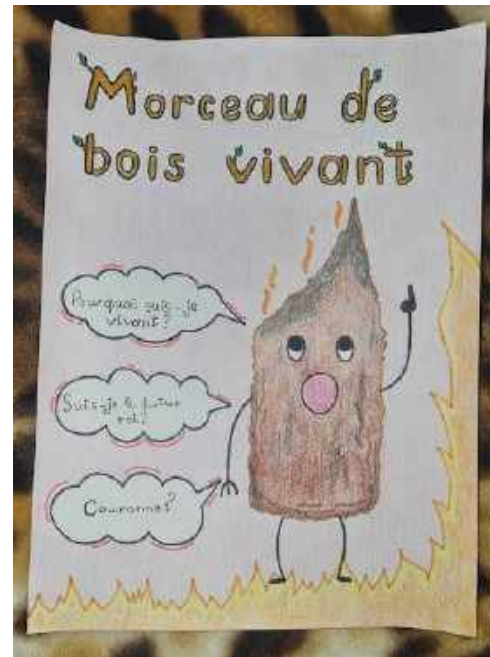 Morceau de
bois vivant
Pourquoi suis-je
vivant?
Suis-je le futur
roi?
Couronne?